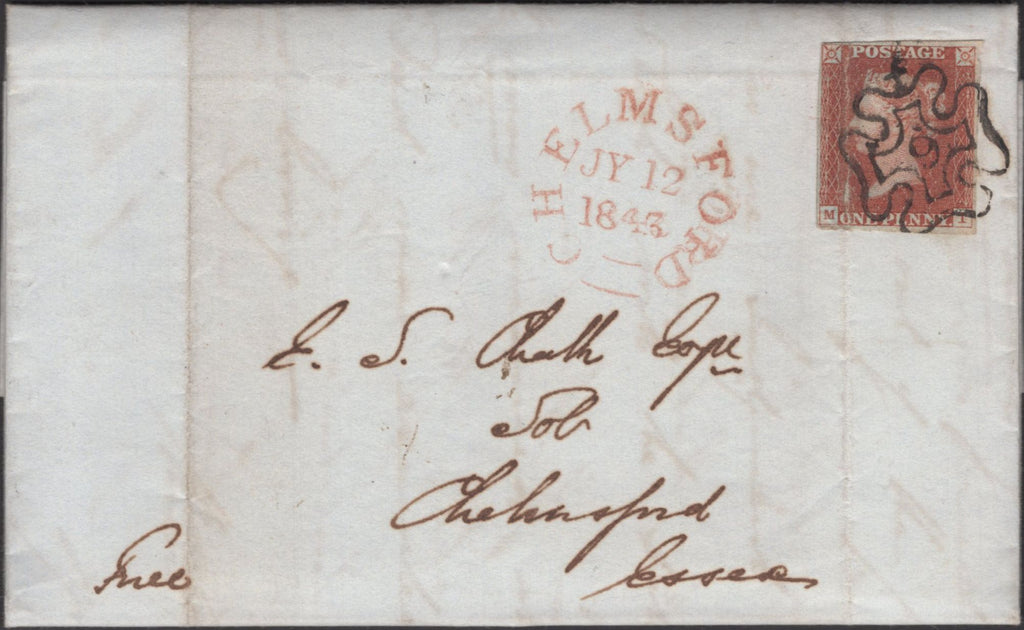 POSTAGE
6
M ONE PENNY I
CHELMSFORD
JY 12
1843
E. S. Chalk Esqre
Sol
Chelmsford
Essex
Free